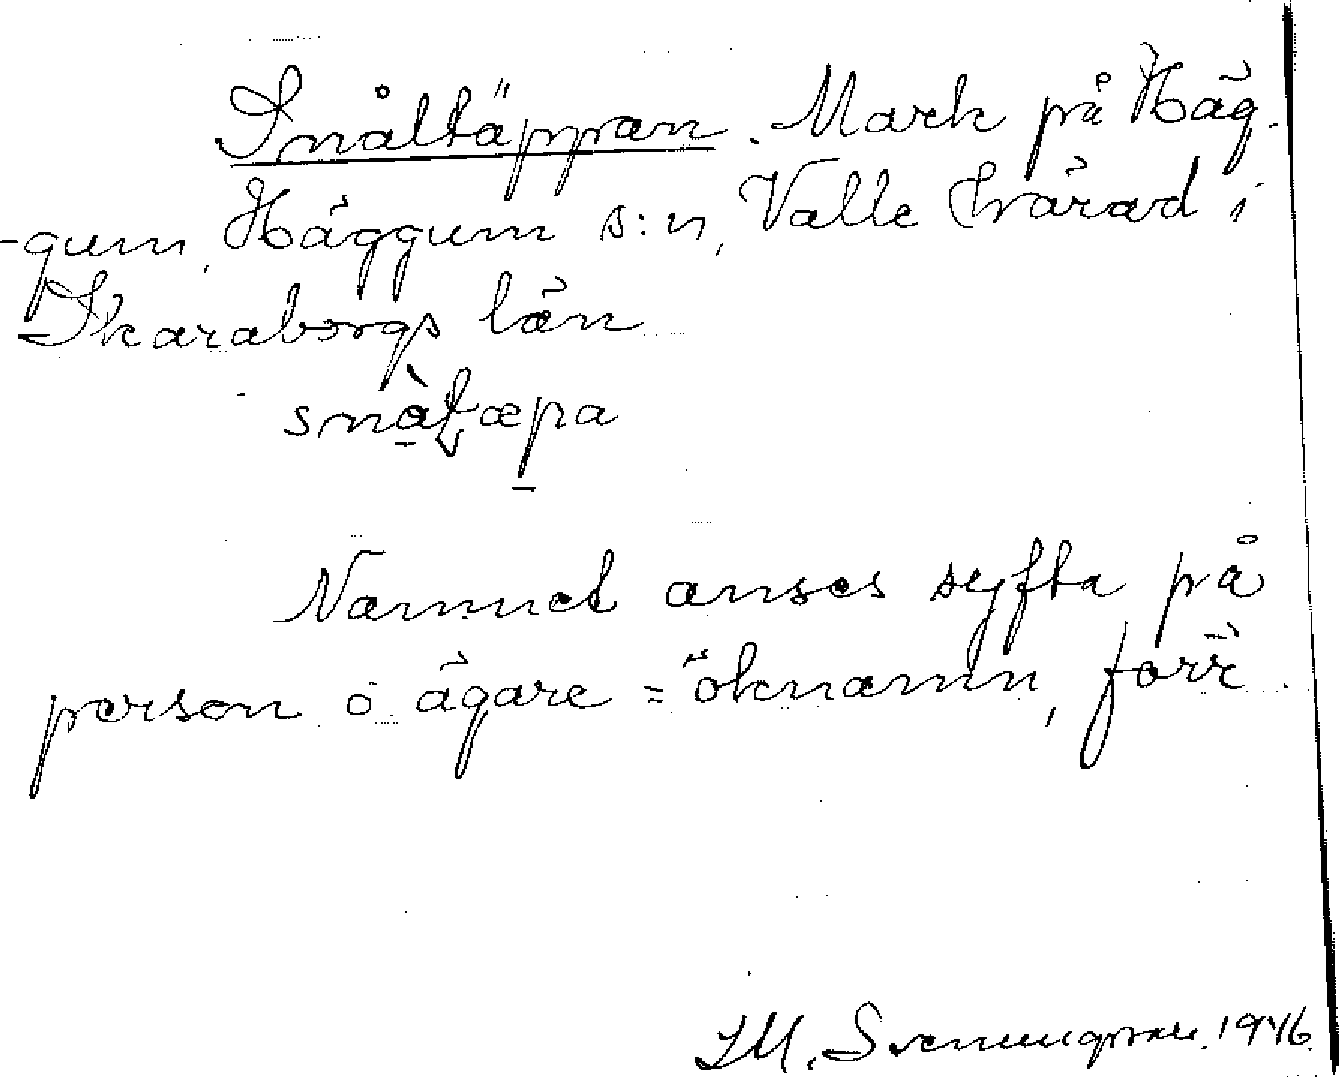 Snåltäppan. Mark på Häg-
-gum, Häggum s:n, Valle härad i
Skaraborgs län
snålt̬æpa
Namnet anses syfta på
person o ägare = öknamn, förr
I.M. Svenungsson. 1946